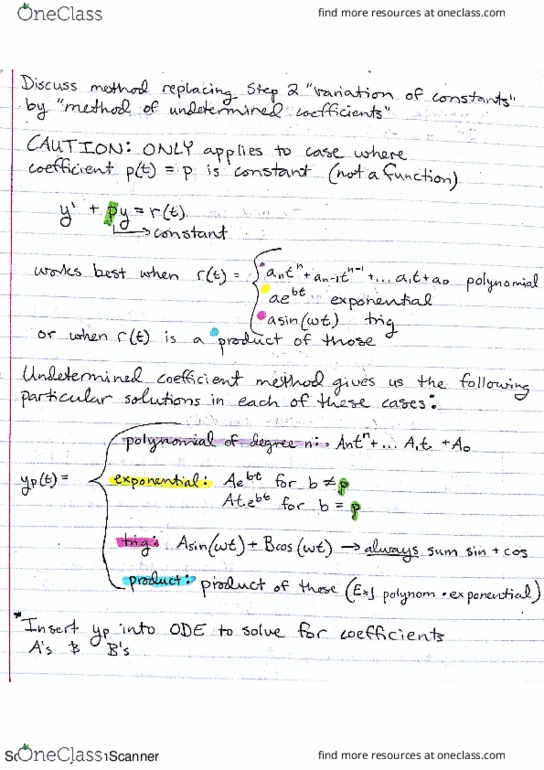 OneClass
find more resources at oneclass.com
Discuss method replacing Step 2 "variation of constants"
by "method of undetermined coefficients"
CAUTION: ONLY applies to case where
coefficient p(t) = p is constant (not a function)
y' + py = r(t)
→ constant
works best when r(t) = { aₙtⁿ + aₙ₋₁tⁿ⁻¹ + ... a₁t + a₀ polynomial
ae^bt exponential
asin(ωt) trig
or when r(t) is a product of those
Undetermined coefficient method gives us the following
particular solutions in each of these cases:
polynomial of degree n: Aₙtⁿ + ... A₁t + A₀
yp(t) = { exponential: Ae^bt for b ≠ p
Ate^bt for b = p
trig: Asin(ωt) + Bcos(ωt) → always sum sin + cos
product: product of these (Ex/ polynom · exponential)
*Insert yp into ODE to solve for coefficients
A's & B's
OneClass
Scanner
find more resources at oneclass.com